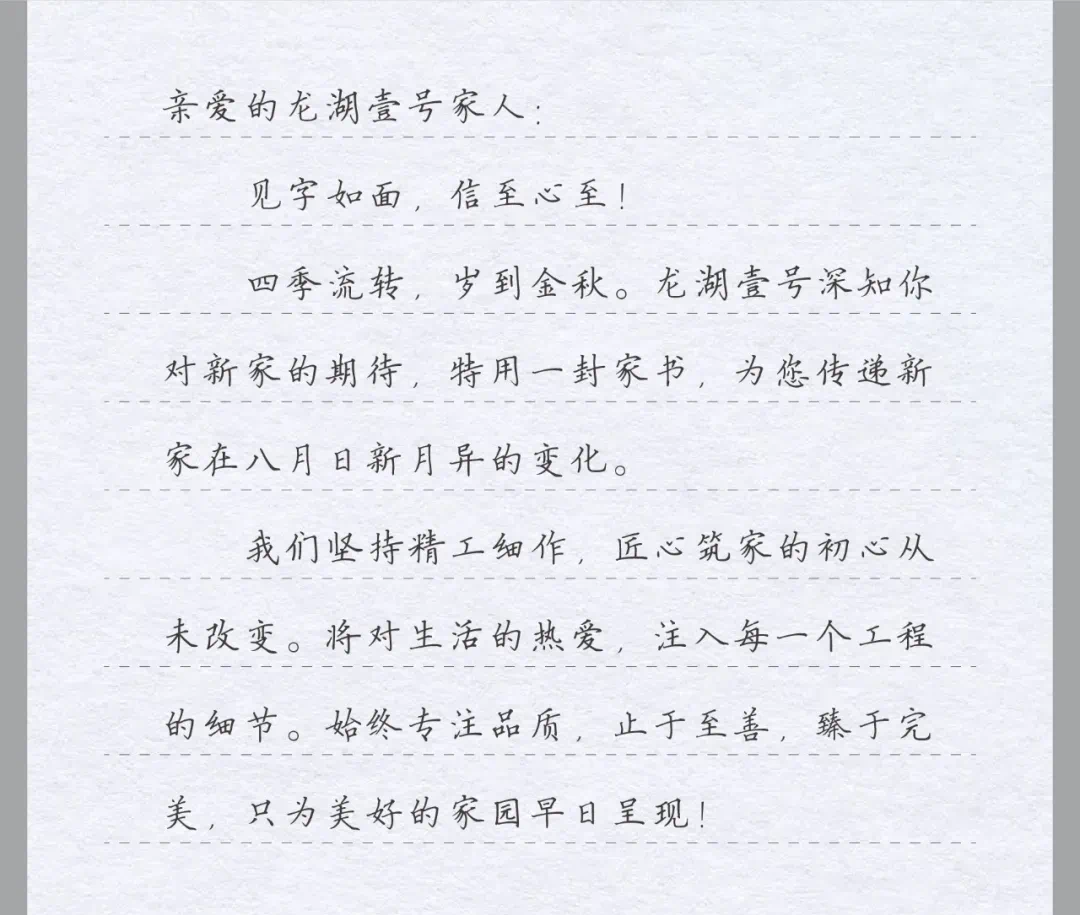 亲爱的龙湖壹号家人：
见字如面，信至心至！
四季流转，岁到金秋。龙湖壹号深知你
对新家的期待，特用一封家书，为您传递新
家在八月日新月异的变化。
我们坚持精工细作，匠心筑家的初心从
未改变。将对生活的热爱，注入每一个工程
的细节。始终专注品质，止于至善，臻于完
美，只为美好的家园早日呈现！